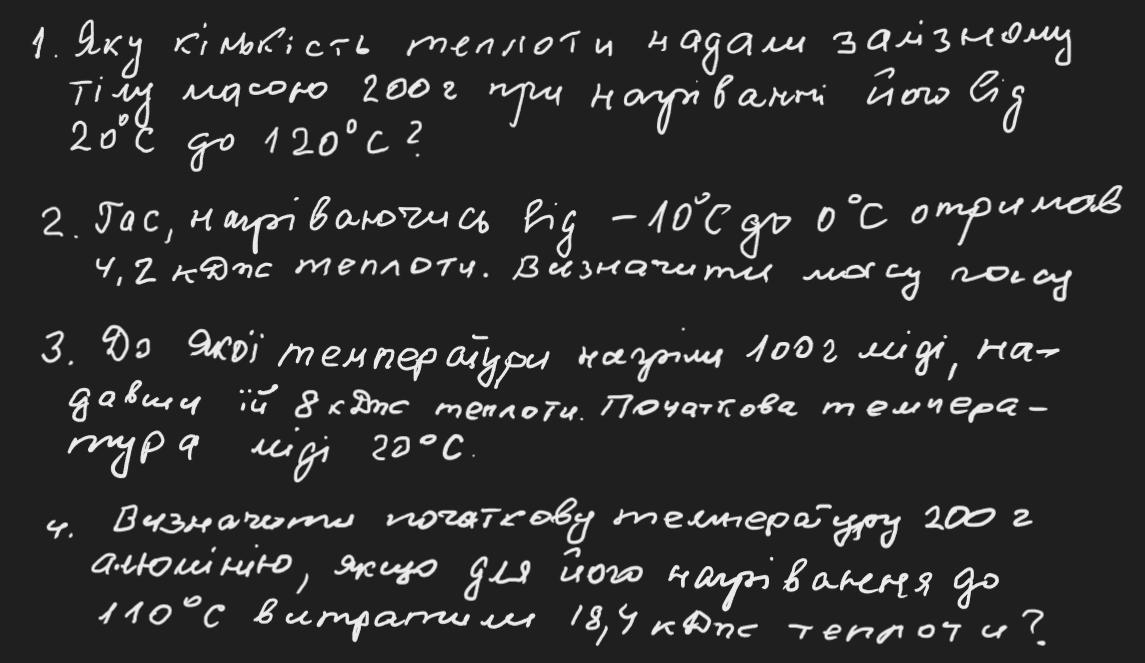 1. Яку кількість теплоти надали залізному
тілу масою 200 г при нагріванні його від
20°C до 120°C?
2. Гас, нагріваючись від -10°C до 0°C отримав
4,2 кДж теплоти. Визначити масу гасу
3. До якої температури нагріли 100 г міді, на-
давши їй 8 кДж теплоти. Початкова темпера-
тура міді 20°C.
4. Визначити початкову температуру 200 г
алюмінію, якщо для його нагрівання до
110°C витратили 18,4 кДж теплоти?